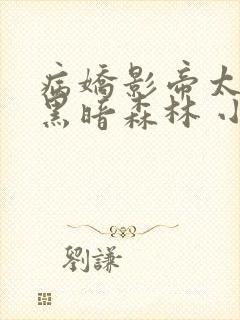 病嬌影帝太
黑暗森林 小
劉謙